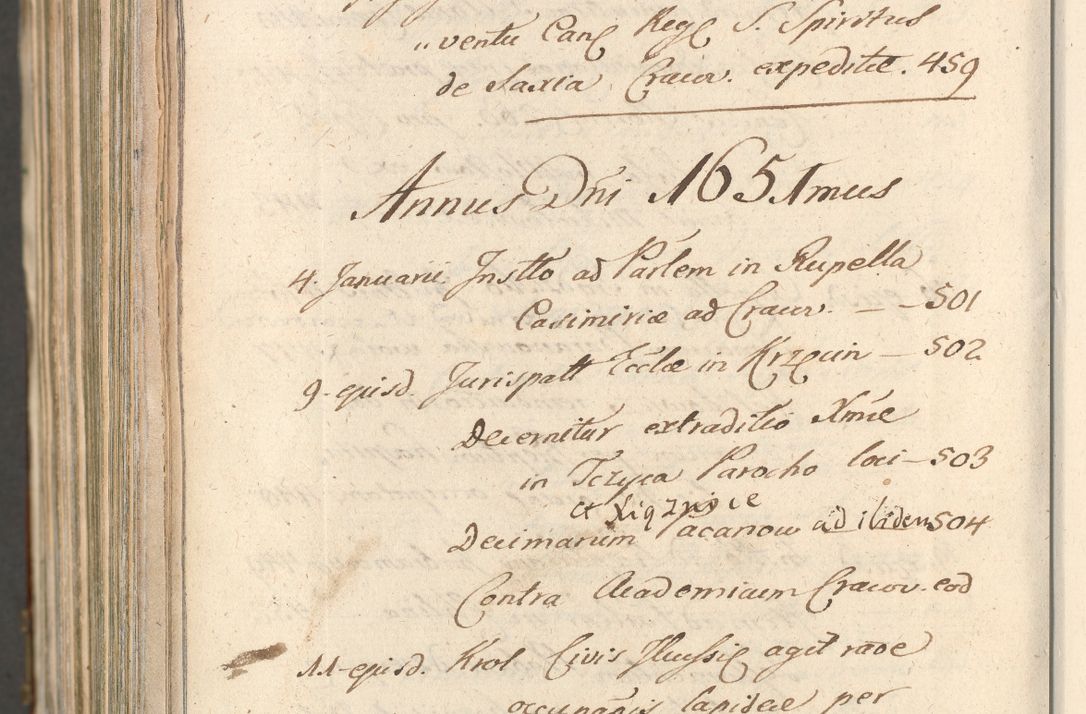 „ventu Canc Regc S. Spiritus
de Saxia Cracov. expeditæ. 459
Annus Dñi 1651mus
4. Januarii Instto ad Parlem in Rupella
Casimiriæ ad Cracov. — — 501
9. ejusd. Jurispatt Ecclæ in Krzęcin — 502
Decernitur extraditio Xmæ
in Tczyca Parocho loci — 503
et Xiąznice
Decimarum Pacanow ad ibidem 504
Contra Academicum Cracov. eod
11. ejusd. Krol Civis Ilkussic agit raõe
occupañis lapideæ per